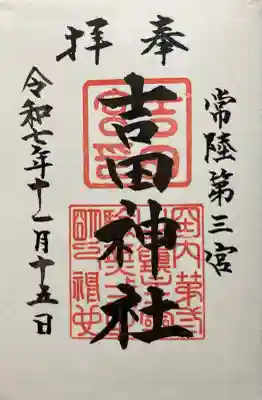 奉拝
常陸第三宮
吉田神社
令和七年十一月十五日